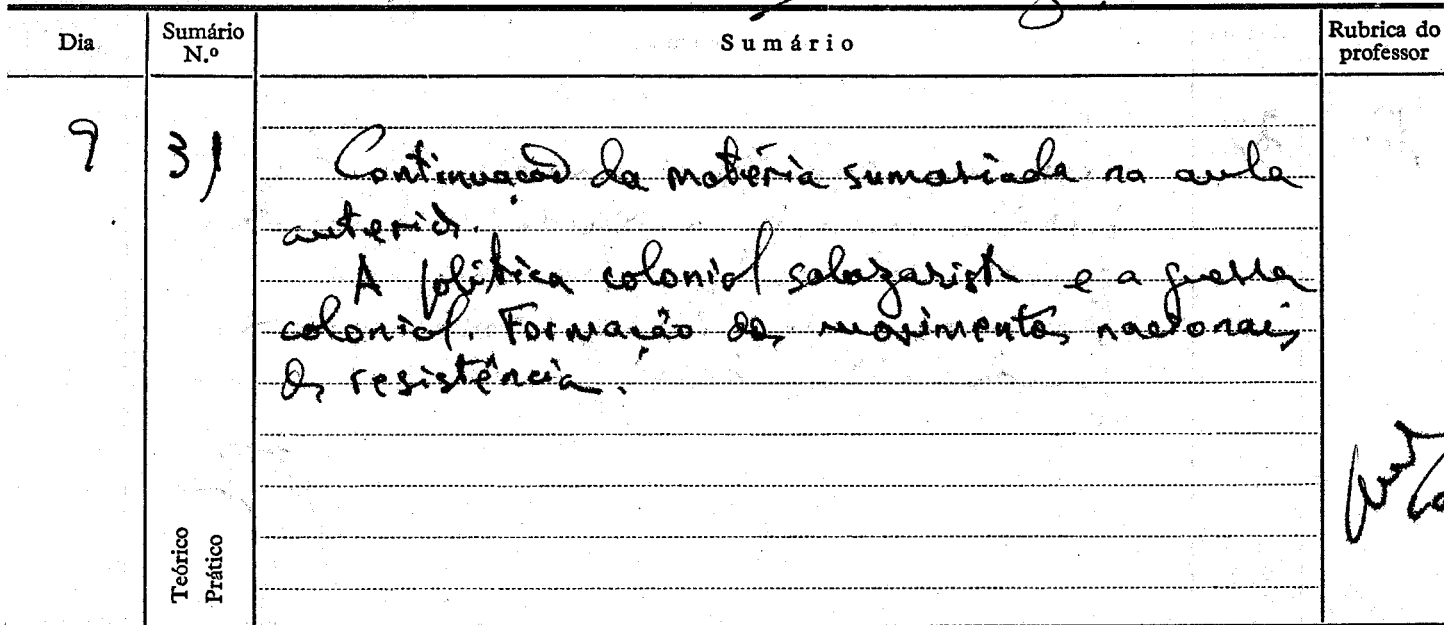 Dia
Sumário N.º
Sumário
Rubrica do professor
9
31
Continuação da matéria sumariada na aula
anterior.
A política colonial salazarista e a guerra
colonial. Formação dos movimentos nacionais
de resistência.
Teórico
Prático